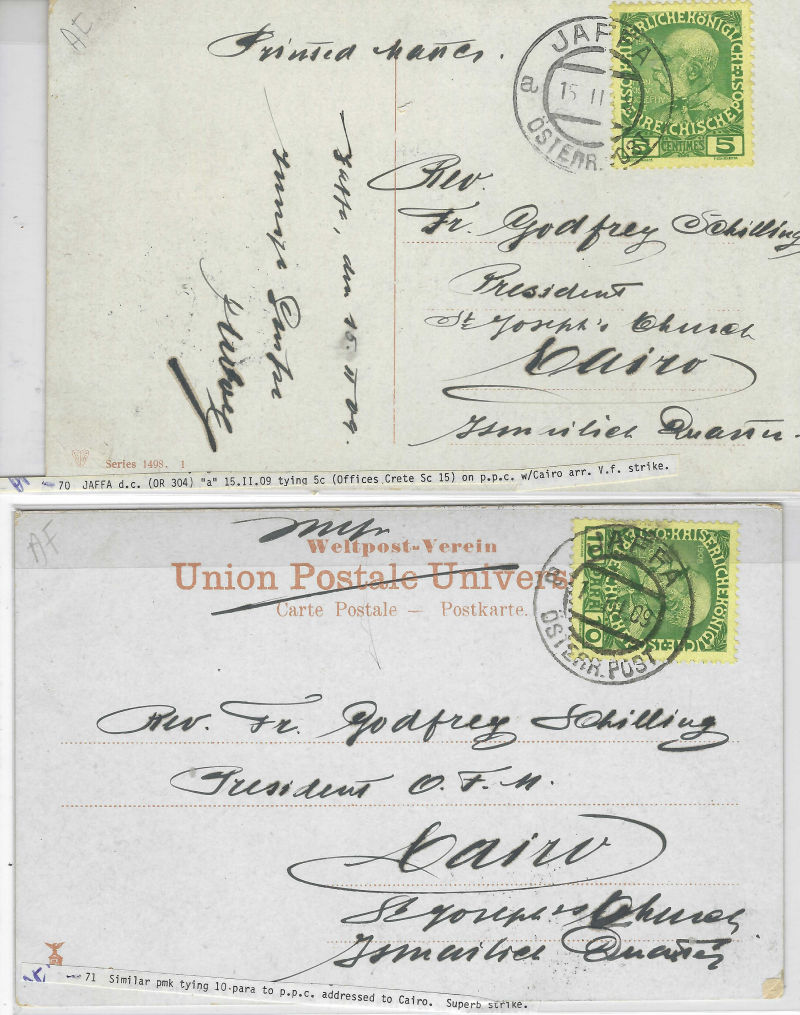 AE
Printed Matter.
JAFFA
a
15 II
ÖSTERR.
KAISERLICHE KÖNIGLICHE ÖST
ERREICHISCHE
5 CENTIMES 5
Jaffa, den 15. II 09.
Rev.
Fr. Godfrey Schilling
President
St Joseph's Church
Cairo
Ismailieh Quarter.
Series 1498. 1
70 JAFFA d.c. (OR 304) "a" 15.II.09 tying 5c (Offices Crete Sc 15) on p.p.c. w/Cairo arr. V.f. strike.
AF
Weltpost-Verein
Union Postale Univers
Carte Postale — Postkarte.
JAFFA
a
09
ÖSTERR. POST
10 PARA 10
Rev. Fr. Godfrey Schilling
President O. F. M.
Cairo
St Joseph's Church
Ismailieh Quarter
71 Similar pmk tying 10-para to p.p.c. addressed to Cairo. Superb strike.